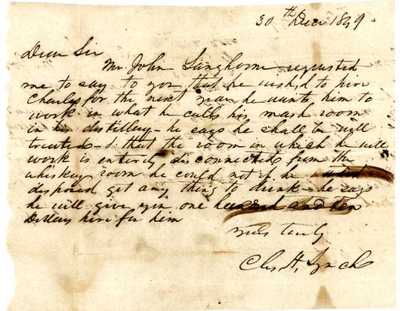 30th Decr 1849
Dear Sir
Mr John Langhorne requested
me to say to you that he wished to hire
Charles for the next year he wants him to
work in what he calls his mash room
in his distillery - he says he shall be well
treated - & that the room in which he will
work is entirely disconnected from the
whiskey room he could not if he
desired get any thing to drink - he says
he will give you one hundred and ten
Dollars hire for him
yours truly
Chs. H. Lynch